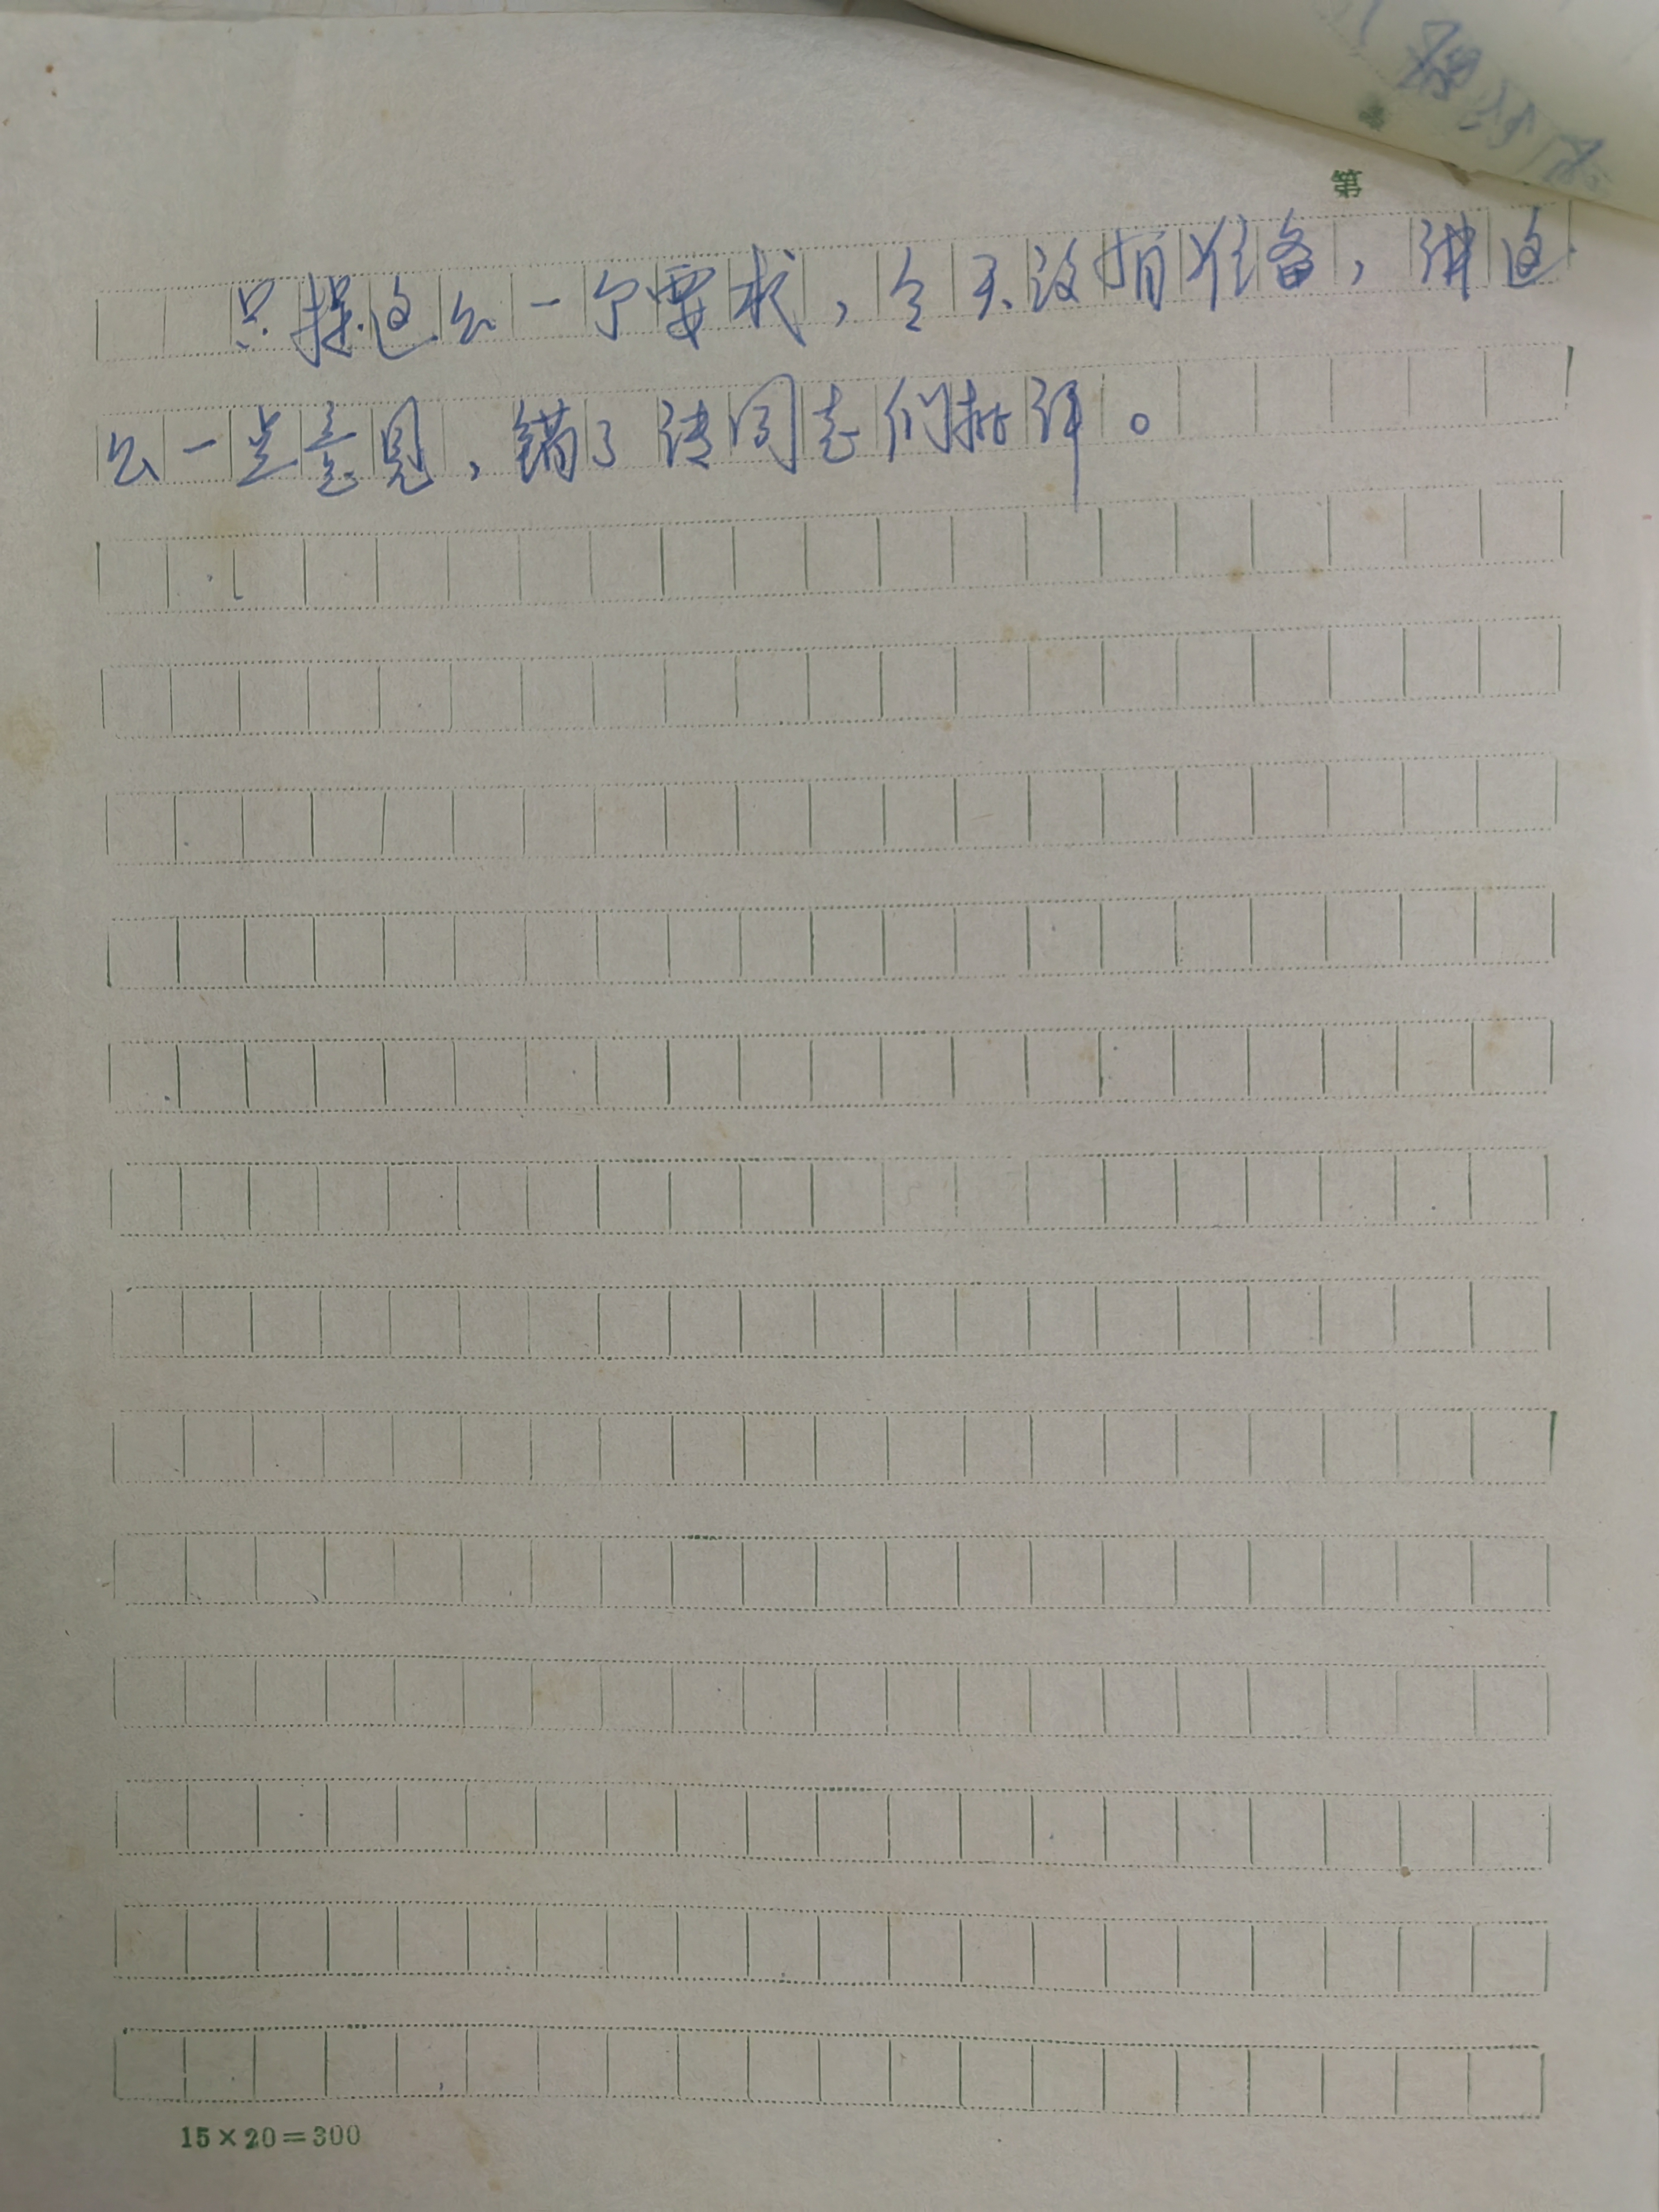 第
只提这么一个要求,今天没有准备,讲这
么一点意见,错了请同志们批评。
15×20=300